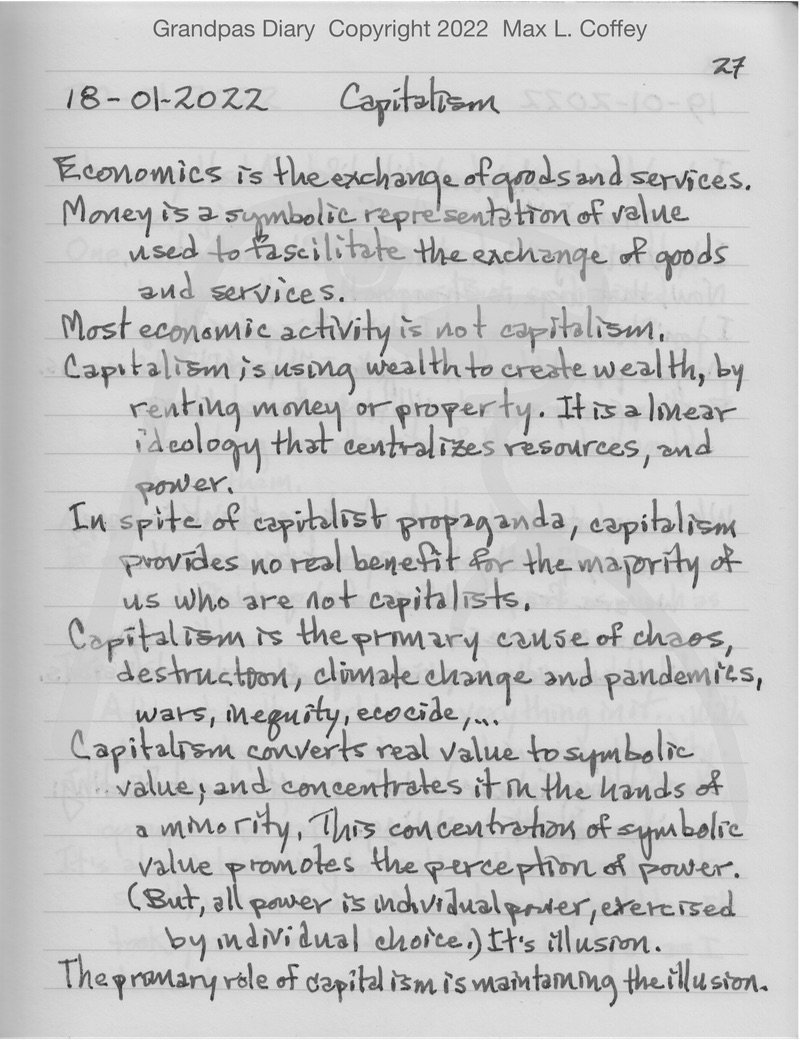 Grandpas Diary Copyright 2022 Max L. Coffey
27
18-01-2022 Capitalism
Economics is the exchange of goods and services.
Money is a symbolic representation of value
used to fascilitate the exchange of goods
and services.
Most economic activity is not capitalism.
Capitalism is using wealth to create wealth, by
renting money or property. It is a linear
ideology that centralizes resources, and
power.
In spite of capitalist propaganda, capitalism
provides no real benefit for the majority of
us who are not capitalists.
Capitalism is the primary cause of chaos,
destruction, climate change and pandemics,
wars, inequity, ecocide,...
Capitalism converts real value to symbolic
value; and concentrates it in the hands of
a minority. This concentration of symbolic
value promotes the perception of power.
(But, all power is individual power, exercised
by individual choice.) It's illusion.
The primary role of capitalism is maintaining the illusion.